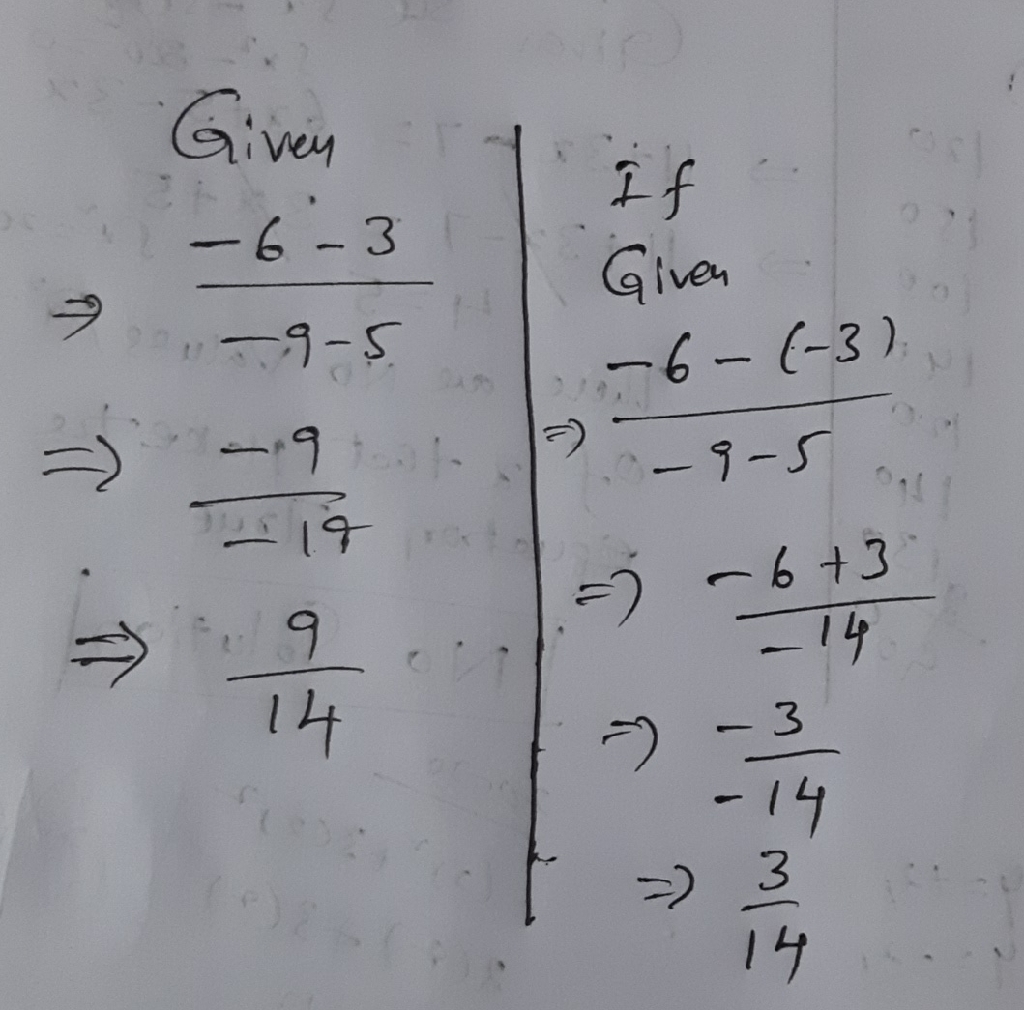 Given
⇒ -6 - 3
-9-5
⇒ -9
-14
⇒ 9
14
If
Given
⇒ -6 - (-3)
-9-5
⇒ -6 +3
-14
⇒ -3
-14
⇒ 3
14